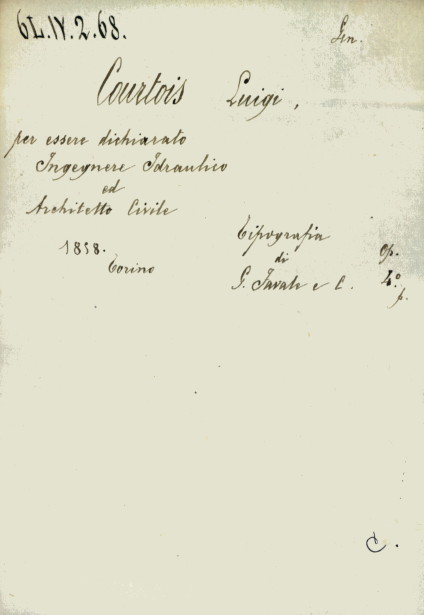 6L.IV.2.68.
Gen.
Courtois Luigi,
per essere dichiarato
Ingegnere Idraulico
ed
Architetto Civile
1858.
Torino
Tipografia
di
G. Favale e C.
op.
4.°
p.
C.